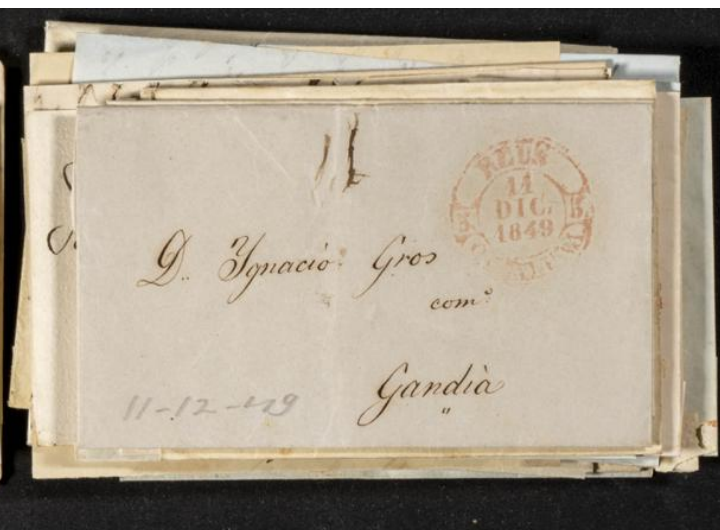 REUS
11
DIC.
1849
D. Ygnacio Gros
com.º
Gandìa
11-12-49